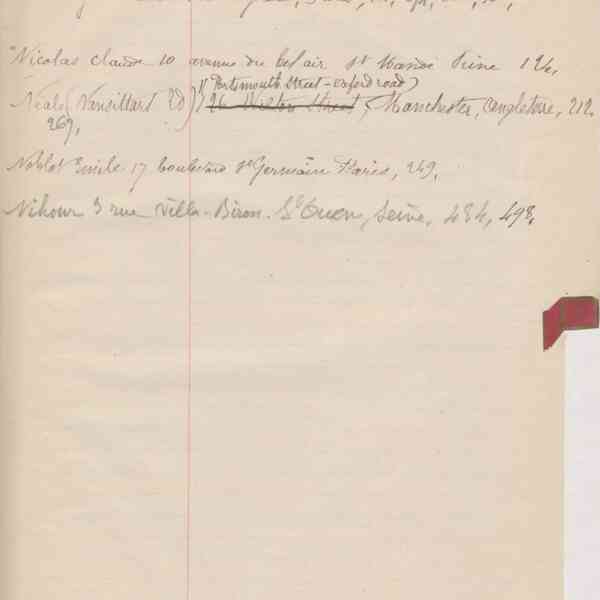 Nicolas Claude 10 avenue du bel air St Mandé Seine 124,
11 Portsmouth Street - oxford road)
Neals (Vansittart Ed) 26 Wilton Street, Manchester, Angleterre, 212,
269,
Noblot Emile 17 boulevard St Germain Paris, 249,
Nihour 3 rue Villa-Biron. St Ouen, Seine, 484, 498,